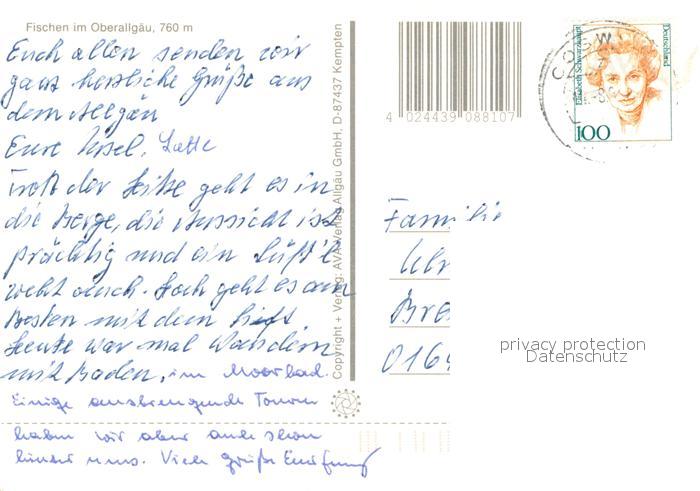 Fischen im Oberallgäu, 760 m
Euch allen senden wir
ganz herzliche Grüße aus
dem Allgäu
Eure Ursel, Lotte
Trotz der Hitze geht es in
die Berge, die Aussicht ist
prächtig und ein Lüft'l
weht auch. Hoch geht es am
Besten mit dem Lift
Heute war mal Wandern
mit Baden, im Moorbad.
Einige anstrengende Touren
haben wir aber auch schon
hinter uns. Viele Grüße
Copyright + Verlag: AVA-Verlag Allgäu GmbH, D-87437 Kempten
4 024439 088107
Deutschland
Elisabeth Schwarzhaupt
100
COSW
Familie
Bre
016
privacy protection
Datenschutz